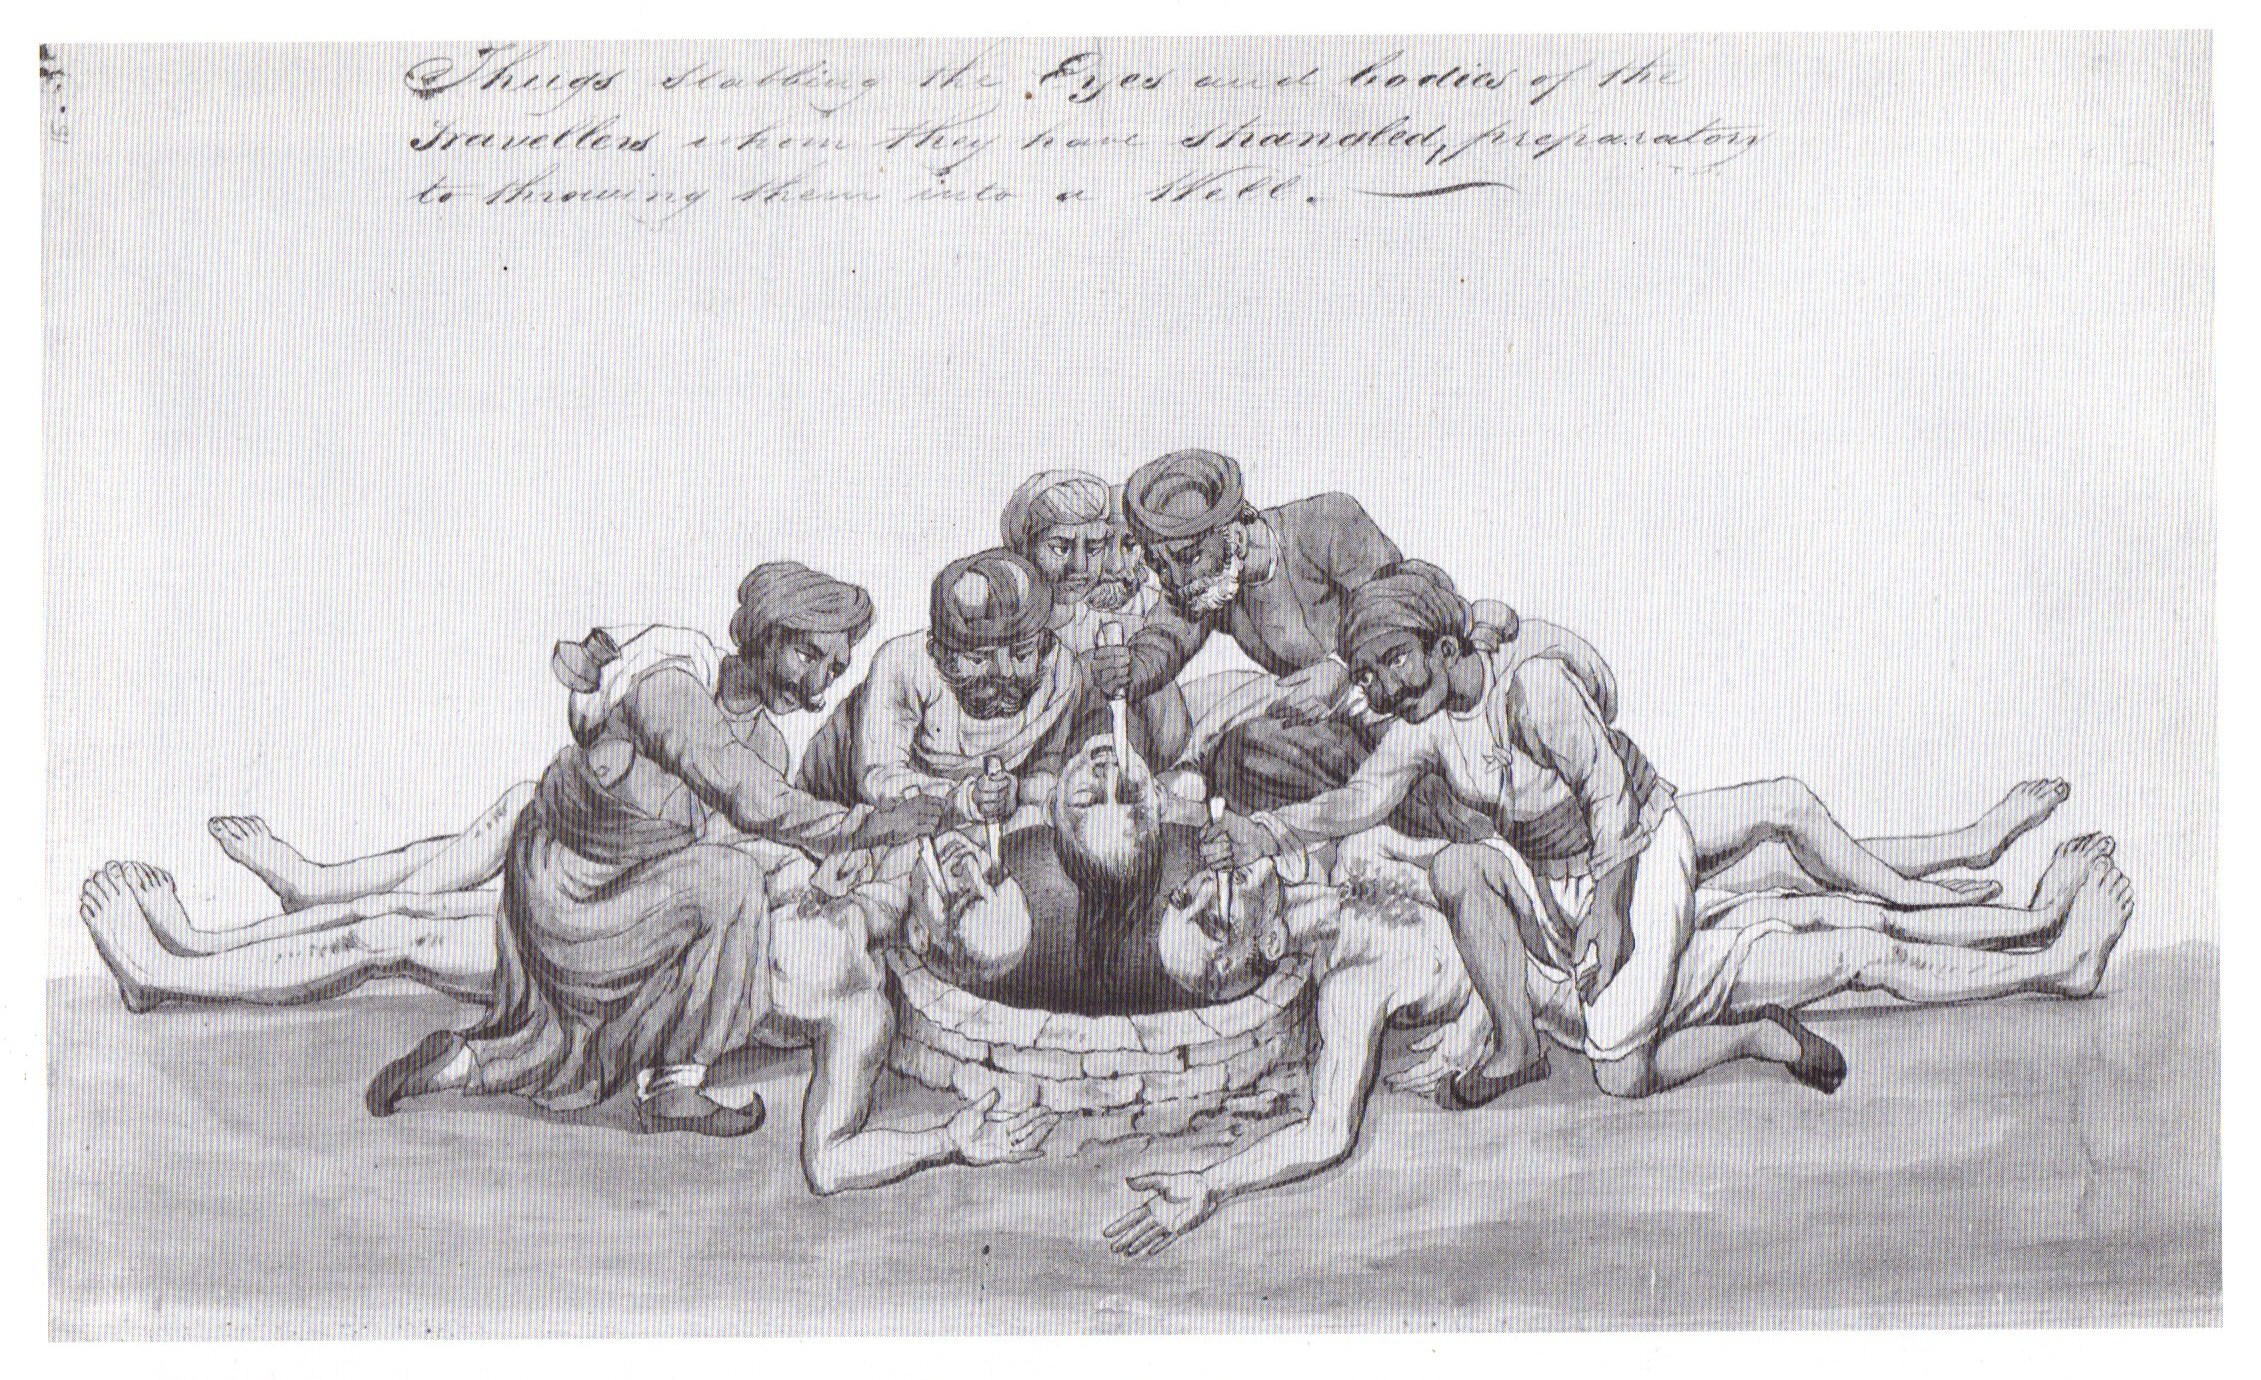 Thugs stabbing the Eyes and bodies of the
Travellers whom they have strangled, preparatory
to throwing them into a Well.